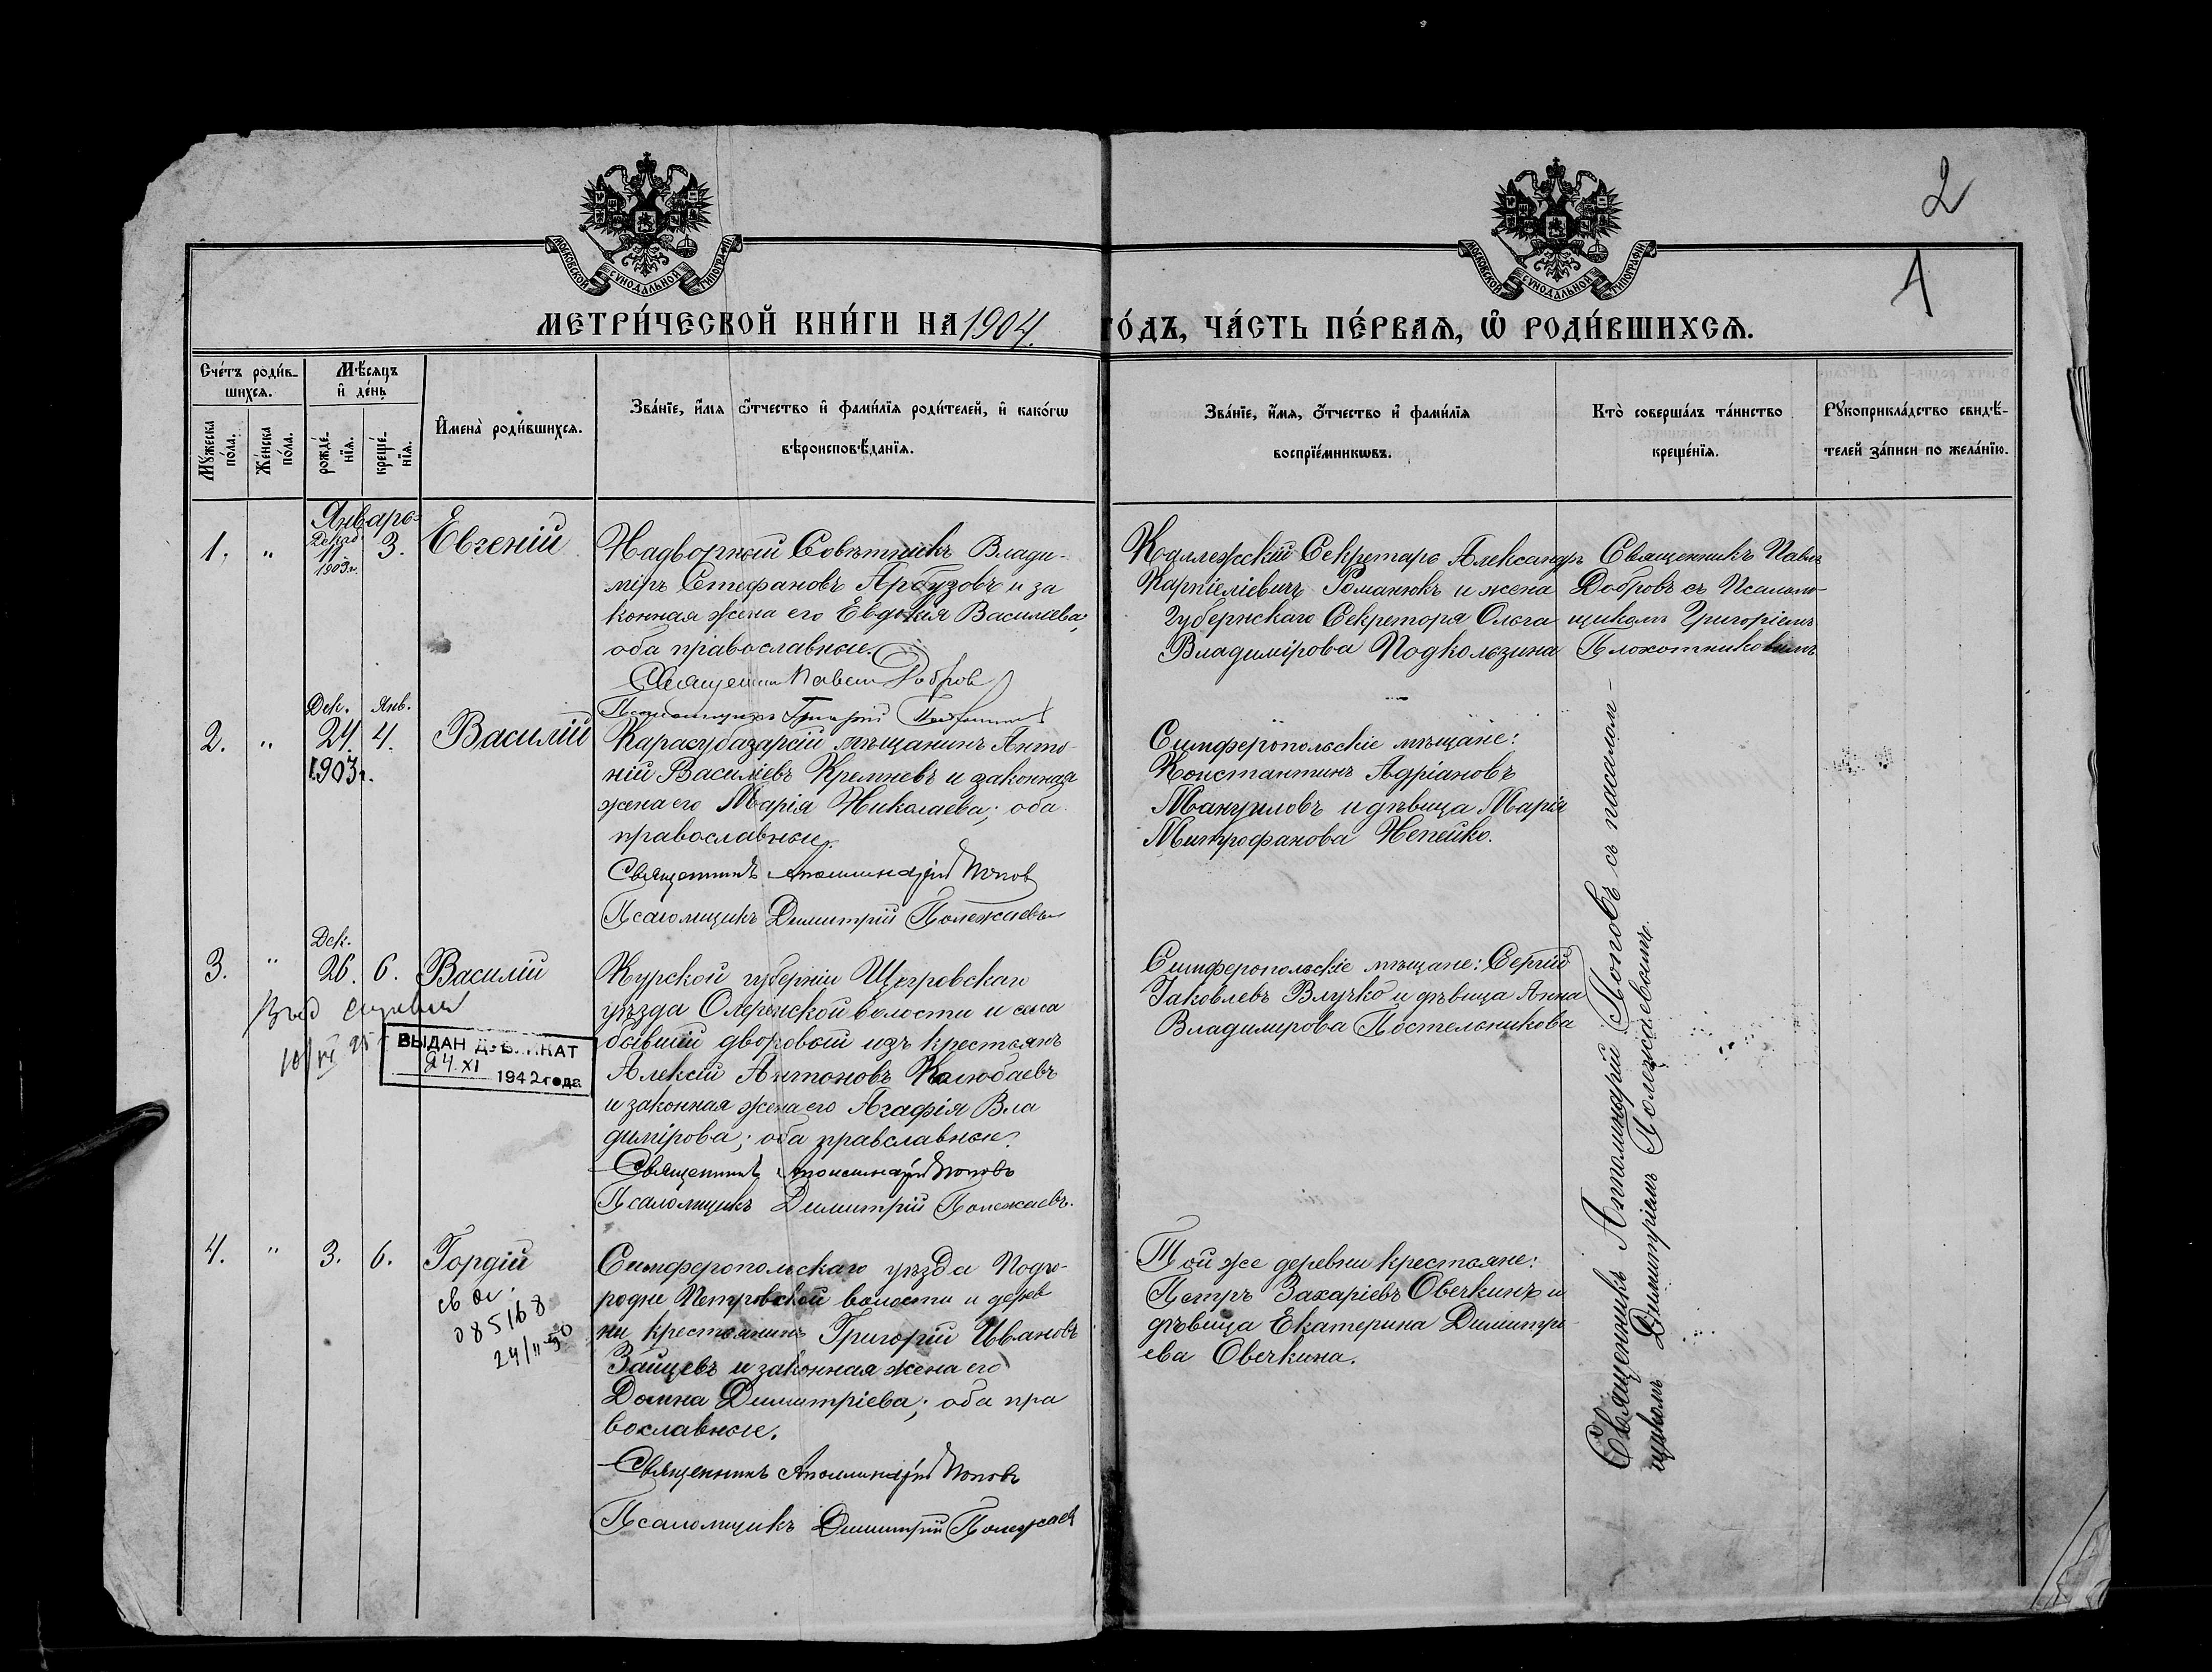 2
1
МОСКОВСКОЙ СѴНОДАЛЬНОЙ ТИПОГРАФІИ
МОСКОВСКОЙ СѴНОДАЛЬНОЙ ТИПОГРАФІИ
МЕТРИ́ЧЕСКОЙ КНИ́ГИ НА 1904. ГО́ДЪ, ЧА́СТЬ ПЕ́РВАѦ, Ѽ РОДИ́ВШИХСѦ.
Сче́тъ роди́в-
шихсѧ.
Мꙋ́жеска по́ла.
Же́нска по́ла.
Мѣ́сѧцъ
и҆ де́нь
рожде́-
нїѧ.
креще́-
нїѧ.
И҆мена̀ роди́вшихсѧ.
Зва́нїе, и҆́мѧ ѻ҆́тчество и҆ фами́лїѧ роди́телей, и҆ како́гѡ
вѣроисповѣ́данїѧ.
Зва́нїе, и҆́мѧ, ѻ҆́тчество и҆ фами́лїѧ
воспрїе́мникѡвъ.
Кто̀ соверша́лъ та́инство
креще́нїѧ.
Рꙋкоприкла́дство свидѣ́-
телей за́писи по жела́нїю.
Январь
1. " Декаб 11. 1903 г. 3. Евгеній
Надворный Совѣтникъ Влади-
міръ Стефановъ Арбузовъ и за
конная жена его Евдокія Васильева,
оба православные.
Священник Павел Добров
Псаломщикъ Григорій
Коллежскій Секретарь Александръ
Романюкъ и жена
Губернскаго Секретаря Ольга
Владимірова Подкользина
Священникъ Павелъ
Добровъ съ Псалом-
щикомъ Григоріемъ
Плохотниковымъ
Дек. Янв.
2. " 24. 4. Василій
1903 г.
Карасубазарсій мѣщанинъ Анто-
ній Василіевъ Кремневъ и законная
жена его Марія Николаева; оба
православные.
Священникъ Аполлинарій Попов
Псаломщикъ Димитрій Полежаевъ
Симферопольскіе мѣщане:
Константинъ Адріановъ
Мануиловъ и дѣвица Марія
Митрофанова Непейко.
Дек.
3. " 26. 6. Василій
ВЫДАН ДУБЛИКАТ
24.XI 1942 года
Курской губерніи Щигровскаго
уѣзда волости и села
бывшій дворовый изъ крестьянъ
Алексій Антоновъ Колюбаевъ
и законная жена его Агафія Вла
димірова; оба правславные.
Священникъ Аполлинарій Поповъ
Псаломщикъ Димитрій Полежаевъ.
Симферопольскіе мѣщане: Сергій
Іаковлевъ Влучко и дѣвица Анна
Владимирова Постельникова
4. " 3. 6. Гордій
св ог.
085168
24/II 50
Симферопольскаго уѣзда Подго-
родне Петровской волости и дерев
ни крестьянинъ Григорій Ивановъ
Зайцевъ и законная жена его
Домна Димитріева; оба пра
вославные.
Священникъ Аполлинарій Поповъ
Псаломщикъ Димитрій Полежаев
Той же деревни крестьяне:
Петръ Захаріевъ Овечкинъ и
дѣвица Екатерина Димитрі-
ева Овечкина.
Священникъ Апполинарій Поповъ съ псалом-
щикомъ Димитріемъ Полежаевымъ.